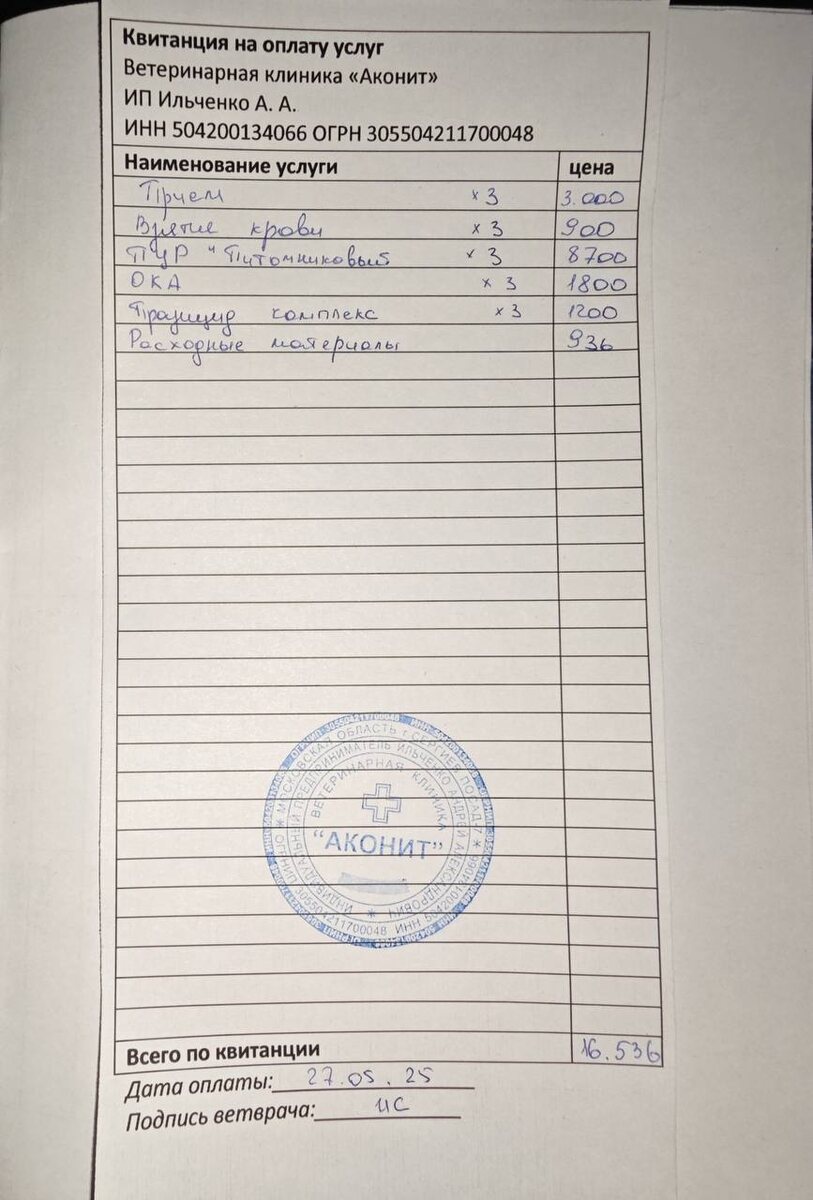 Квитанция на оплату услуг
Ветеринарная клиника «Аконит»
ИП Ильченко А. А.
ИНН 504200134066 ОГРН 305504211700048
Наименование услуги цена
Прием × 3 3.000
Взятие крови × 3 900
ПЦР "Питомниковый × 3 8700
ОКА × 3 1800
Празицид комплекс × 3 1200
Расходные материалы 936
МОСКОВСКАЯ ОБЛАСТЬ г. СЕРГИЕВ ПОСАД-7
ИНДИВИДУАЛЬНЫЙ ПРЕДПРИНИМАТЕЛЬ ИЛЬЧЕНКО АНДРЕЙ АЛЕКСАНДРОВИЧ
ОГРНИП 305504211700048 ИНН 504200134066
ВЕТЕРИНАРНАЯ КЛИНИКА
"АКОНИТ"
Всего по квитанции 16.536
Дата оплаты: 27.05.25
Подпись ветврача: ИС